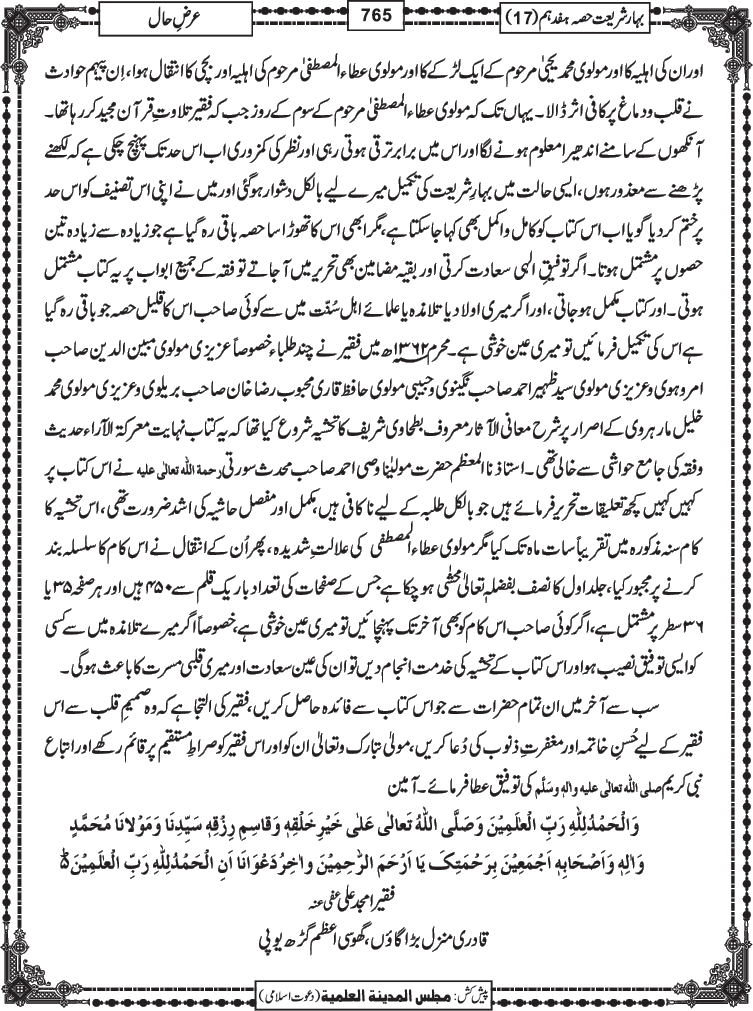 بہارِشریعت حصہ ہفدہم (17)
765
عرضِ حال
اور ان کی اہلیہ کا اور مولوی محمد یحییٰ مرحوم کے ایک لڑکے کا اور مولوی عطاء المصطفیٰ مرحوم کی اہلیہ اور بچی کا انتقال ہوا، اِن پیہم حوادث
نے قلب و دماغ پر کافی اثر ڈالا۔ یہاں تک کہ مولوی عطاء المصطفیٰ مرحوم کے سوم کے روز جب کہ فقیر تلاوتِ قرآن مجید کر رہا تھا۔
آنکھوں کے سامنے اندھیرا معلوم ہونے لگا اور اس میں برابر ترقی ہوتی رہی اور نظر کی کمزوری اب اس حد تک پہنچ چکی ہے کہ لکھنے
پڑھنے سے معذور ہوں، ایسی حالت میں بہارِ شریعت کی تکمیل میرے لیے بالکل دشوار ہوگئی اور میں نے اپنی اس تصنیف کو اس حد
پر ختم کر دیا گویا اب اس کتاب کو کامل و اکمل بھی کہا جاسکتا ہے، مگر ابھی اس کا تھوڑا سا حصہ باقی رہ گیا ہے جو زیادہ سے زیادہ تین
حصوں پر مشتمل ہوتا۔ اگر توفیقِ الٰہی سعادت کرتی اور بقیہ مضامین بھی تحریر میں آجاتے تو فقہ کے جمیع ابواب پر یہ کتاب مشتمل
ہوتی۔ اور کتاب مکمل ہوجاتی، اور اگر میری اولاد یا تلامذہ یا علمائے اہل سُنّت میں سے کوئی صاحب اس کا قلیل حصہ جو باقی رہ گیا
ہے اس کی تکمیل فرمائیں تو میری عین خوشی ہے۔ محرم ۱۳۶۲ھ میں فقیر نے چند طلباء خصوصاً عزیزی مولوی مبین الدین صاحب
امروہوی و عزیزی مولوی سید ظہیر احمد صاحب نگینوی و حبیبی مولوی حافظ قاری محبوب رضا خان صاحب بریلوی و عزیزی مولوی محمد
خلیل مارہروی کے اصرار پر شرح معانی الآثار معروف بطحاوی شریف کا تحشیہ شروع کیا تھا کہ یہ کتاب نہایت معرکۃ الآراء حدیث
و فقہ کی جامع حواشی سے خالی تھی۔ استاذنا المعظم حضرت مولیٰنا وصی احمد صاحب محدث سورتی رحمۃ اللہ تعالٰی علیہ نے اس کتاب پر
کہیں کہیں کچھ تعلیقات تحریر فرمائے ہیں جو بالکل طلبہ کے لیے ناکافی ہیں، مکمل اور مفصل حاشیہ کی اشد ضرورت تھی، اس تحشیہ کا
کام سنہ مذکورہ میں تقریباً سات ماہ تک کیا مگر مولوی عطاء المصطفی کی علالتِ شدیدہ، پھر اُن کے انتقال نے اس کام کا سلسلہ بند
کرنے پر مجبور کیا، جلد اول کا نصف بفضلہٖ تعالیٰ محشّٰی ہوچکا ہے جس کے صفحات کی تعداد باریک قلم سے ۴۵۰ ہیں اور ہر صفحہ ۳۵ یا
۳۶ سطر پر مشتمل ہے، اگر کوئی صاحب اس کام کو بھی آخر تک پہنچائیں تو میری عین خوشی ہے، خصوصاً اگر میرے تلامذہ میں سے کسی
کو ایسی توفیق نصیب ہو اور اس کتاب کے تحشیہ کی خدمت انجام دیں تو ان کی عین سعادت اور میری قلبی مسرت کا باعث ہوگی۔
سب سے آخر میں ان تمام حضرات سے جو اس کتاب سے فائدہ حاصل کریں، فقیر کی التجا ہے کہ وہ صمیمِ قلب سے اس
فقیر کے لیے حُسنِ خاتمہ اور مغفرتِ ذنوب کی دُعا کریں، مولیٰ تبارک و تعالیٰ ان کو اور اس فقیر کو صراطِ مستقیم پر قائم رکھے اور اتباع
نبی کریم صلی اللہ تعالٰی علیہ واٰلہٖ وسلّم کی توفیق عطا فرمائے۔ آمین
وَالْحَمْدُ لِلّٰہِ رَبِّ الْعٰلَمِیْنَ وَصَلَّی اللّٰہُ تَعَالٰی عَلٰی خَیْرِ خَلْقِہٖ وَقَاسِمِ رِزْقِہٖ سَیِّدِنَا وَمَوْلَانَا مُحَمَّدٍ
وَاٰلِہٖ وَاَصْحَابِہٖ اَجْمَعِیْنَ بِرَحْمَتِکَ یَا اَرْحَمَ الرّٰحِمِیْنَ وَاٰخِرُ دَعْوَانَا اَنِ الْحَمْدُ لِلّٰہِ رَبِّ الْعٰلَمِیْنَ ؕ
فقیر امجد علی عفی عنہ
قادری منزل بڑا گاؤں، گھوسی اعظم گڑھ یو پی
پیش کش: مجلس المدینۃ العلمیۃ (دعوت اسلامی)